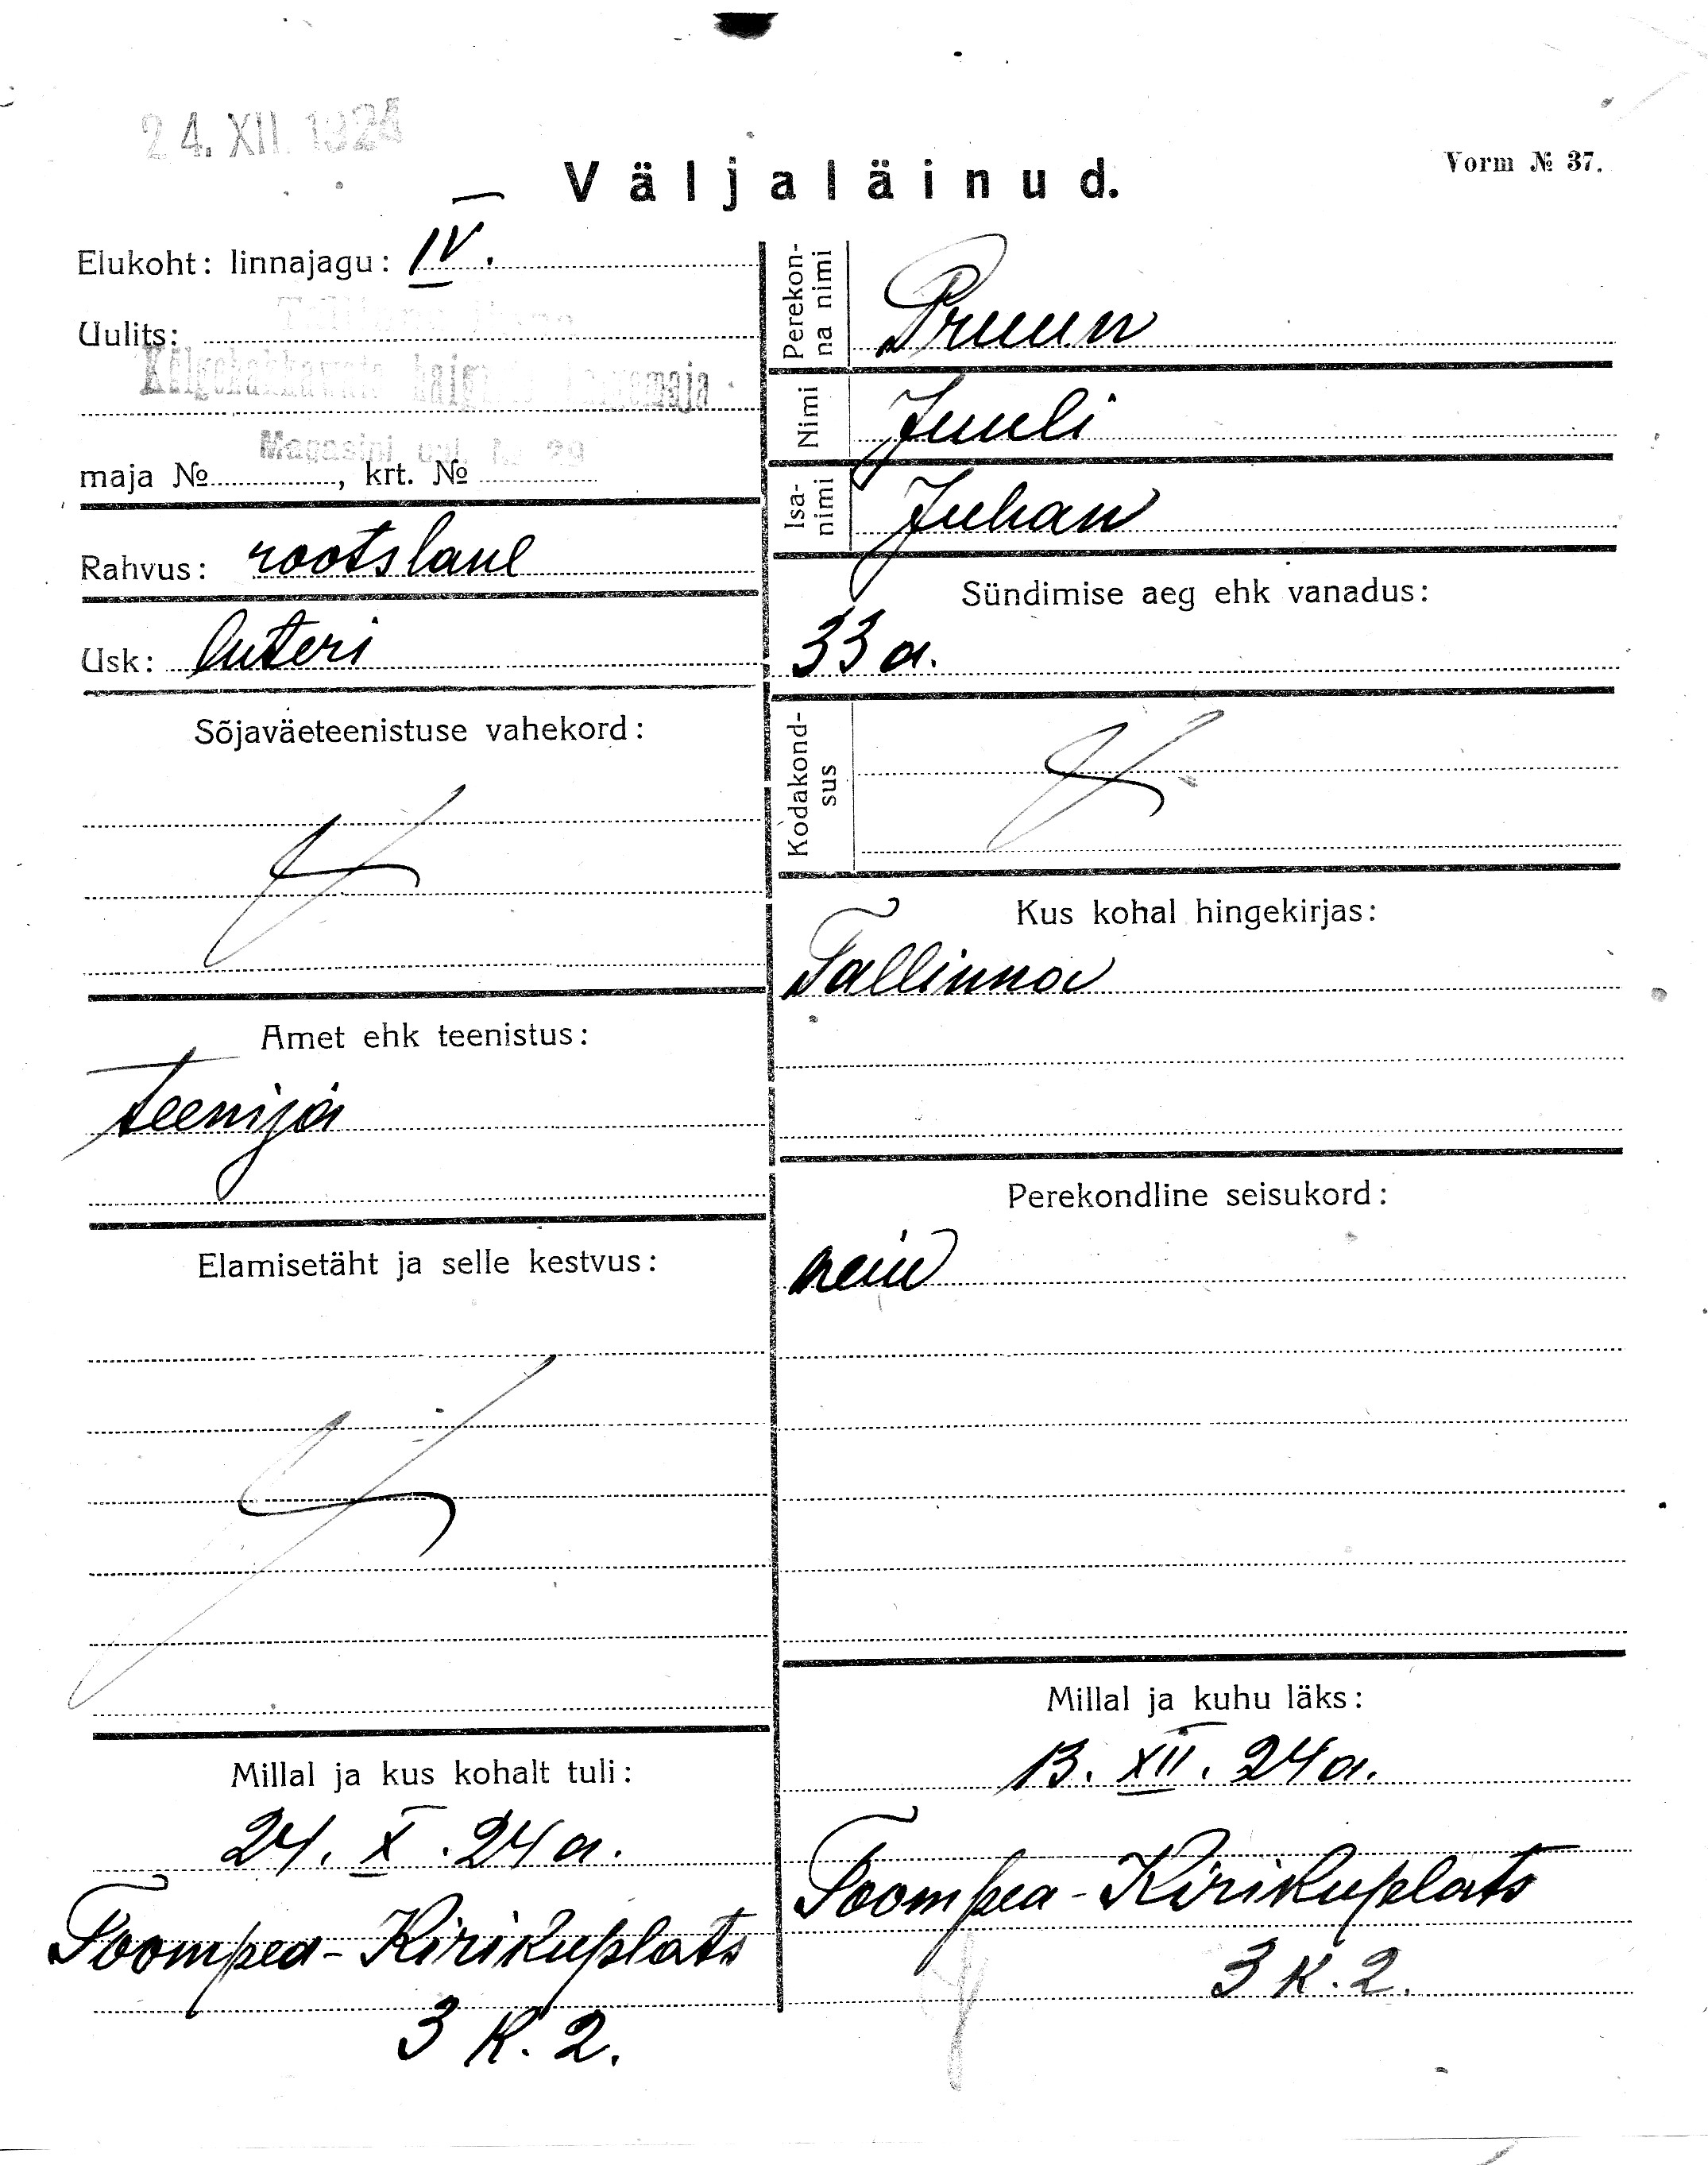 24. XII. 1924
Vorm № 37.
Väljaläinud.
Elukoht: linnajagu: IV.
Uulits:
Külgehakkawate haiguste haigemaja
Magasini uul. № 29
maja № , krt. №
Rahvus: rootslane
Usk: luteri
Sõjaväeteenistuse vahekord:
Amet ehk teenistus:
teenija
Elamisetäht ja selle kestvus:
Millal ja kus kohalt tuli:
24. X. 24 a.
Toompea-Kirikuplats
3 K. 2.
Perekon-
na nimi
Pruun
Nimi
Juuli
Isa-
nimi
Juhan
Sündimise aeg ehk vanadus:
33 a.
Kodakond-
sus
Kus kohal hingekirjas:
Tallinna
Perekondline seisukord:
neiu
Millal ja kuhu läks:
13. XII. 24 a.
Toompea-Kirikuplats
3 K. 2.